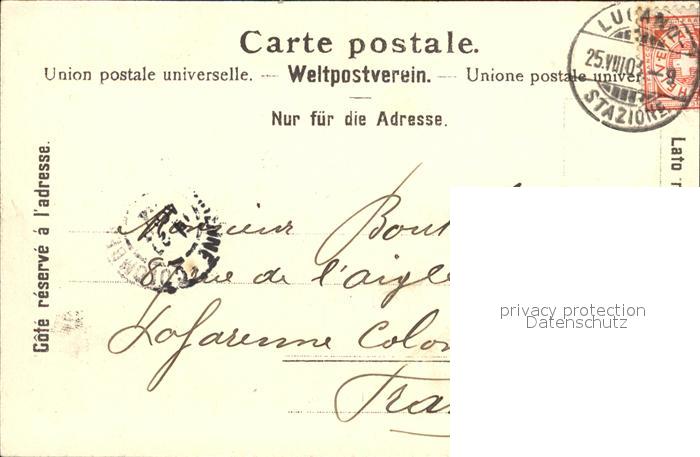 Carte postale.
Union postale universelle. — Weltpostverein. — Unione postale univer
Nur für die Adresse.
LUGANO
25.VIII.03.-9
STAZIONE
Côté réservé à l'adresse.
Lato r
Monsieur Bout
8 rue de l'aigle
La Garenne Colom
Fra
GARENNE COLOMBES
privacy protection
Datenschutz